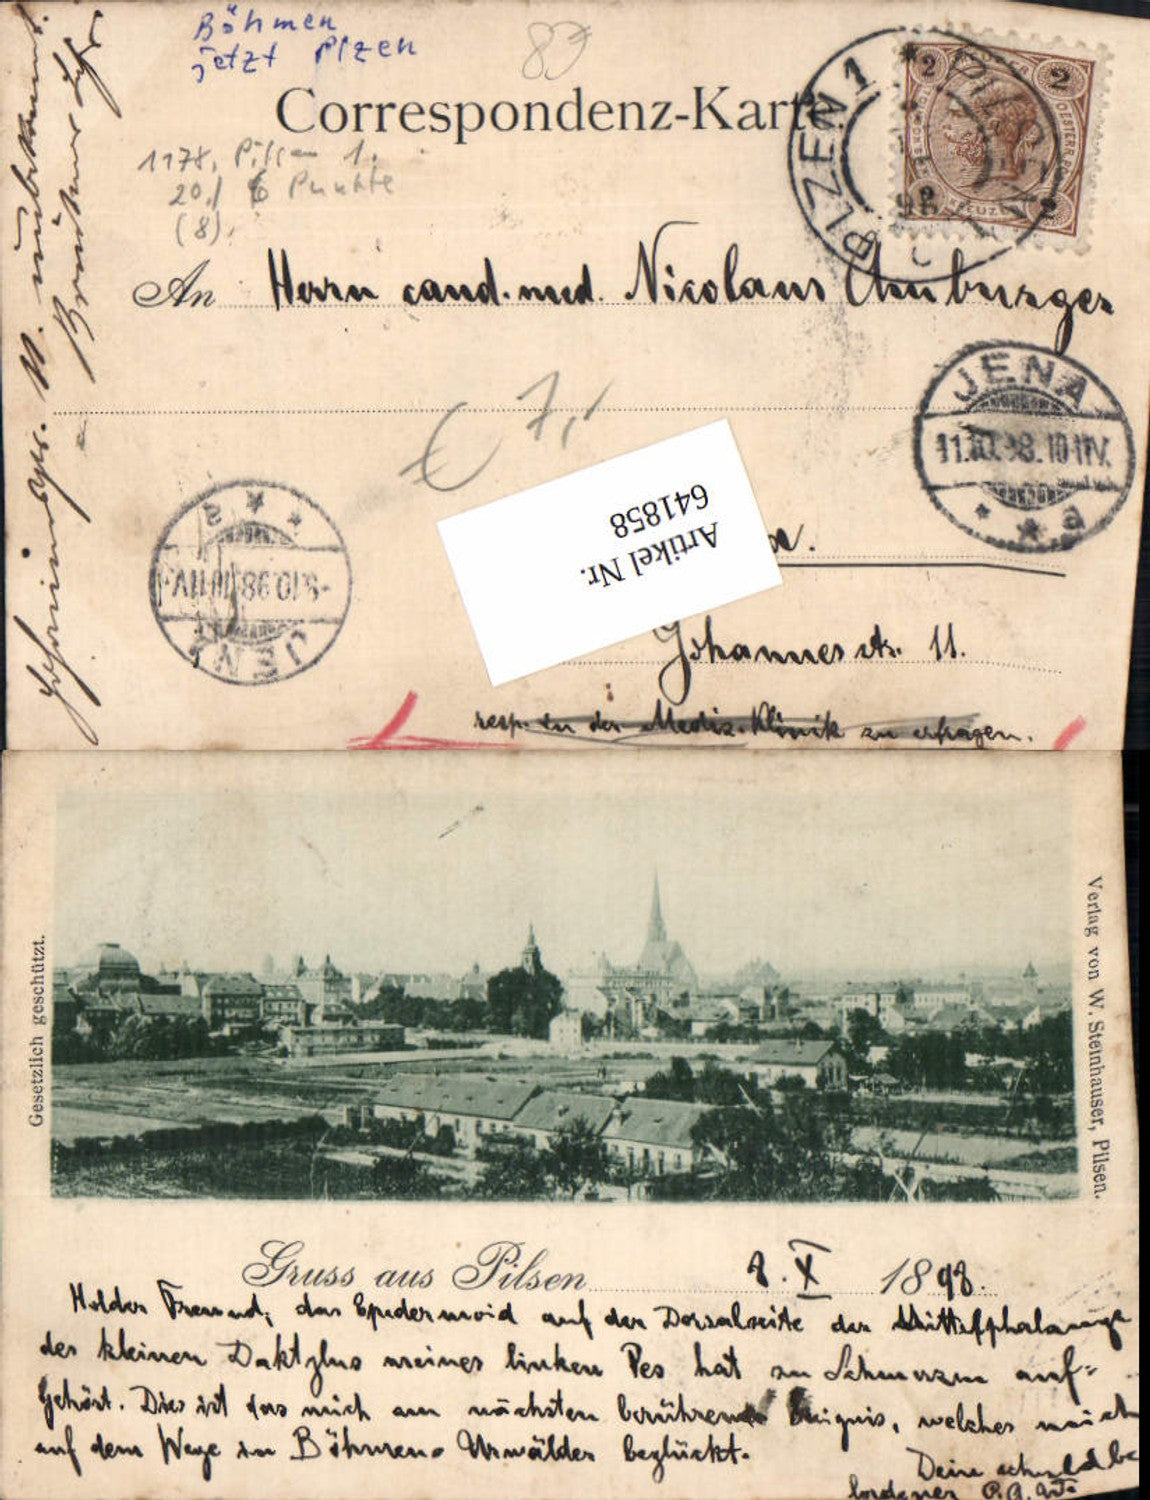 Böhmen
jetzt Plzen
83
Correspondenz-Karte.
1178, Pilsen 1.
20.1 6 Punkte
(8).
PLZEN 1
2 2
2 2
KREUZER
An Herrn cand. med. Nicolaus
JENA
11.10.98.10-11V.
a
€ 7,-
Artikel Nr.
641858
JENA
9.10.98
Johannesstr. 11.
resp. in der Mediz. Klinik zu erfragen.
W. unbekannt.
Gesetzlich geschützt.
Verlag von W. Steinhauser, Pilsen.
Gruss aus Pilsen 8. X 1898.
Holder Freund, das Epidermoid auf der Dorsalseite der Mittelphalange
des kleinen Daktylus meines linken Pes hat zu Schmerzen auf-
gehört. Dies ist das mich am nächsten berührende Ereignis, welches mich
auf dem Wege in Böhmens Urwälder beglückt.
Deine